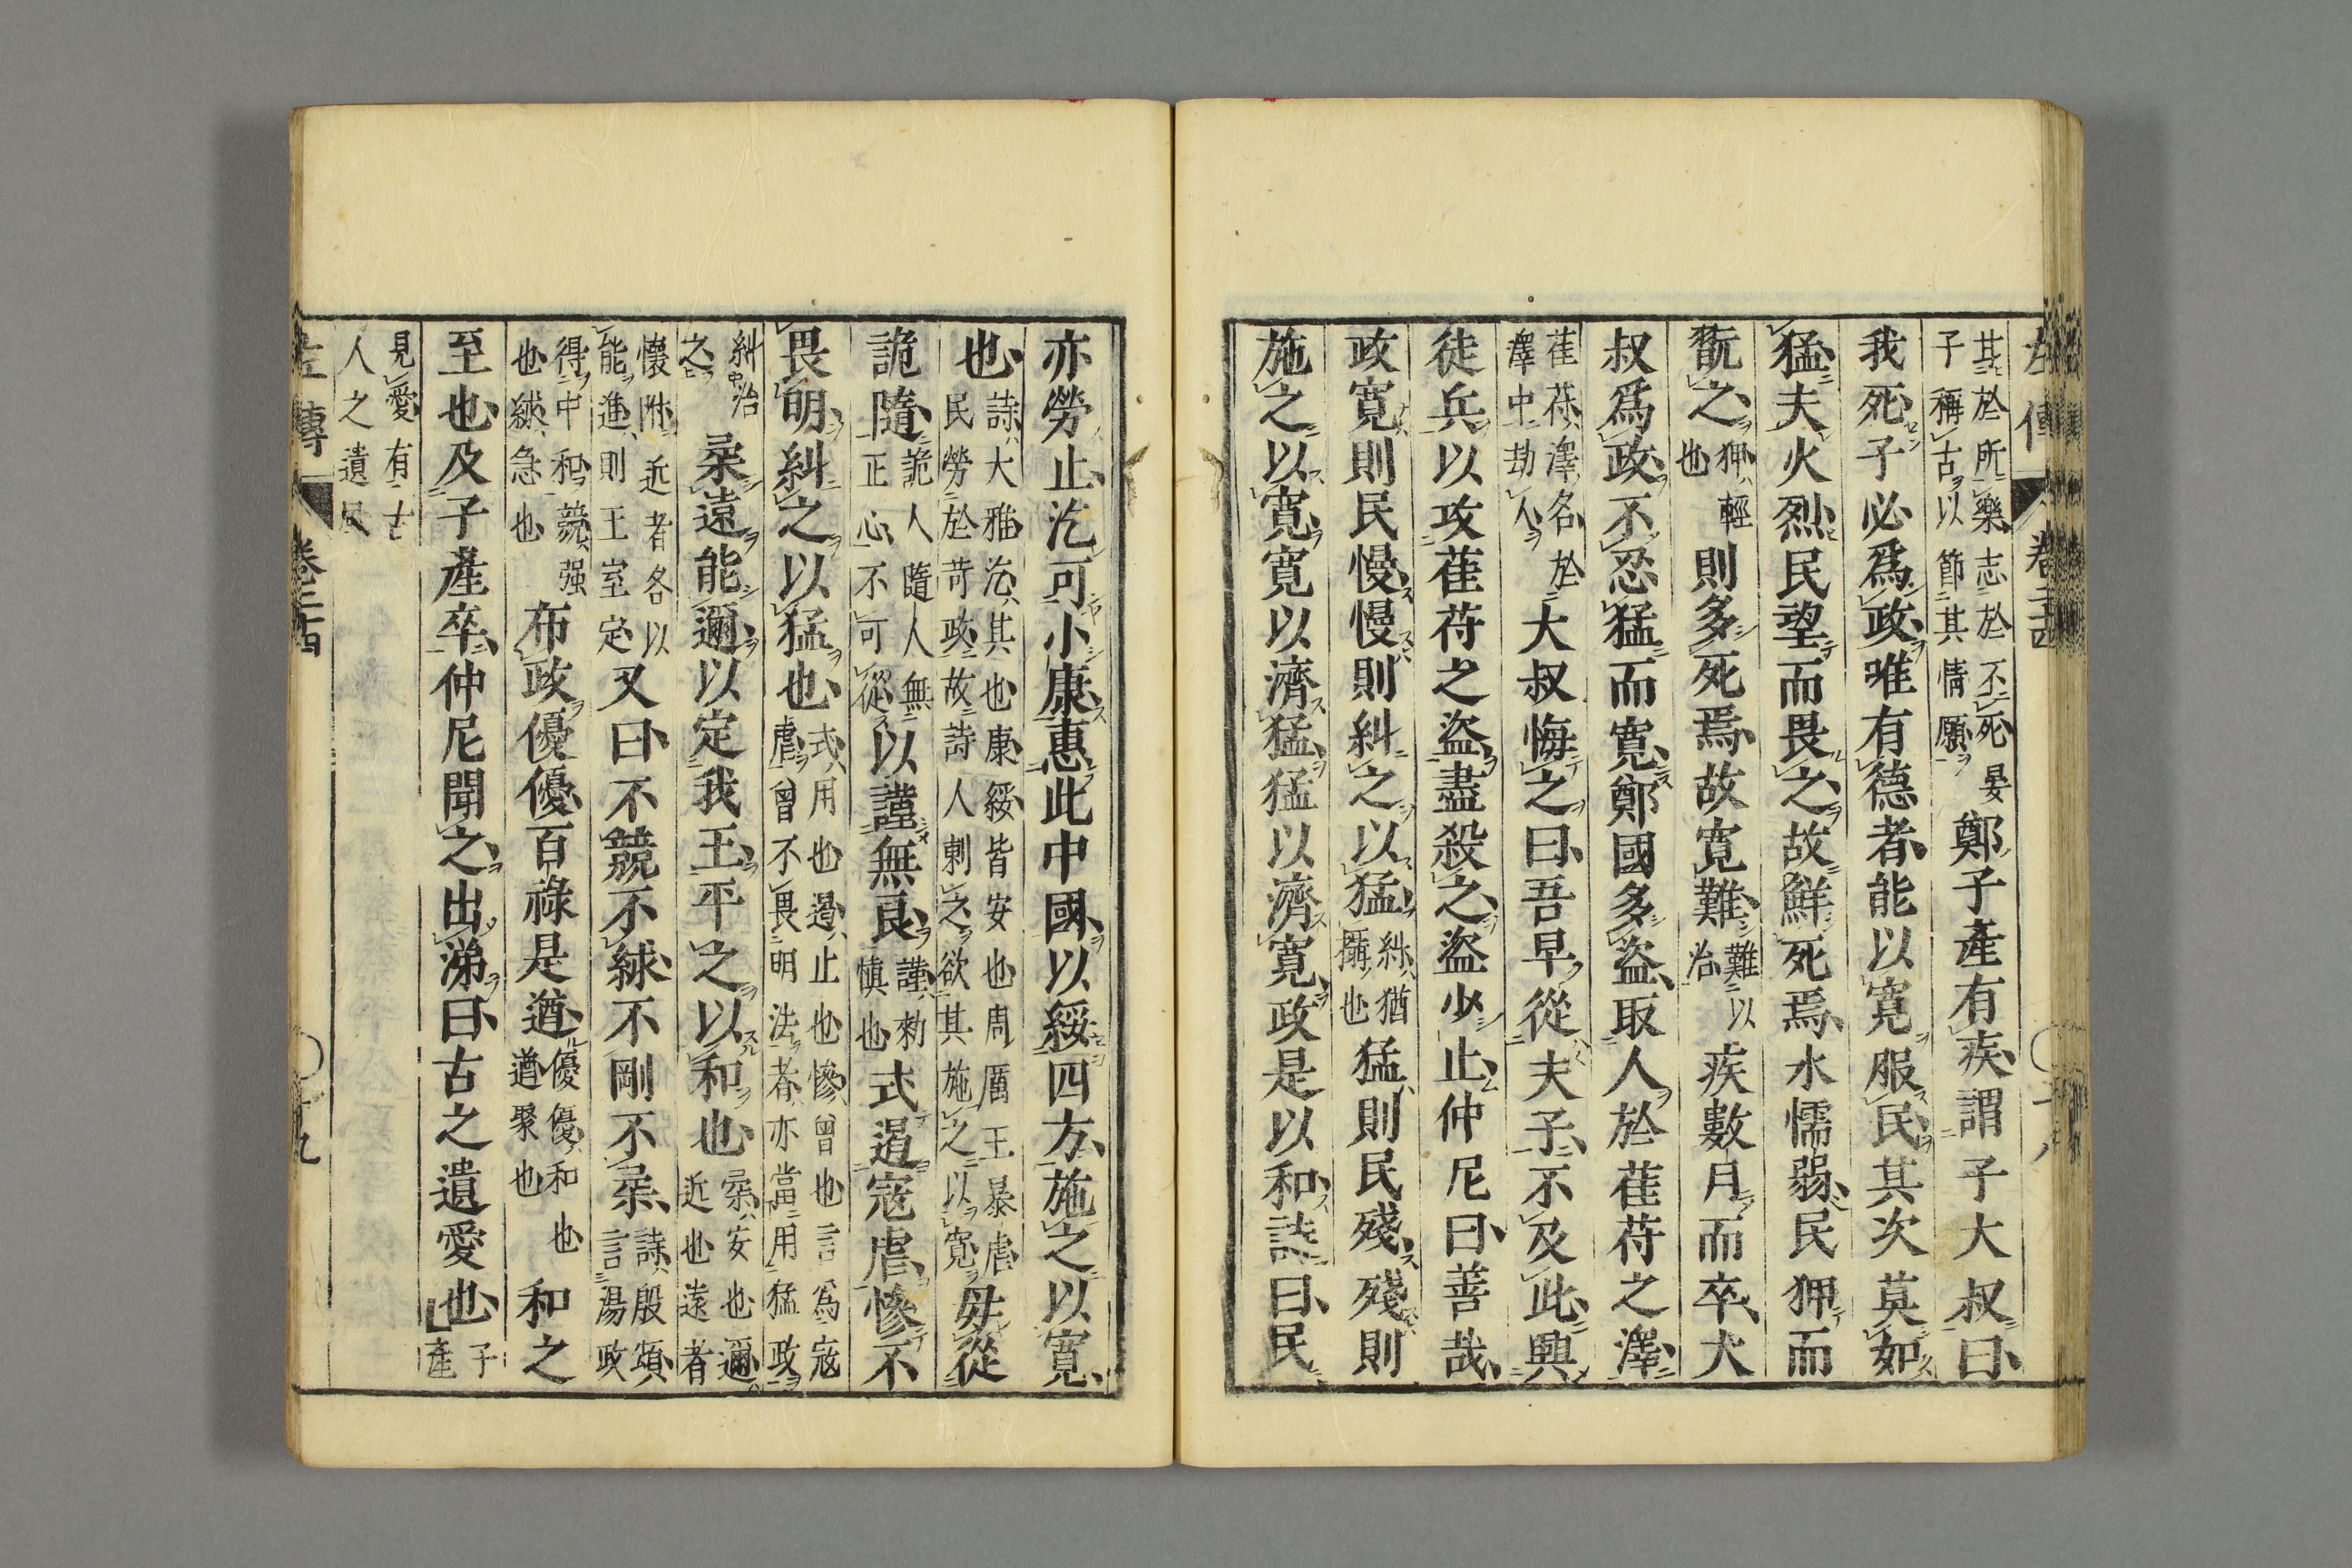 左傳 卷二十四 十八
其於所樂志於不死晏
子稱古以節其情願
鄭子產有疾謂子大叔曰
我死子必爲政唯有德者能以寬服民其次莫如
猛夫火烈民望而畏之故鮮死焉水懦弱民狎而
翫之
狎輕
也
則多死焉故寬難
難以
治
疾數月而卒大
叔爲政不忍猛而寬鄭國多盜取人於萑苻之澤
萑苻澤名於
澤中劫人
大叔悔之曰吾早從夫子不及此興
徒兵以攻萑苻之盜盡殺之盜少止仲尼曰善哉
政寬則民慢慢則糾之以猛
糾猶
攝也
猛則民殘殘則
施之以寬寬以濟猛猛以濟寬政是以和詩曰民
亦勞止汔可小康惠此中國以綏四方施之以寬
也
詩大雅汔其也康綏皆安也周厲王暴虐
民勞於苛政故詩人刺之欲其施之以寬
毋從
詭隨
詭人隨人無
正心不可從
以謹無良
謹勑
愼也
式遏寇虐慘不
畏明糾之以猛也
式用也遏止也慘曾也言爲寇
虐曾不畏明法者亦當用猛政
糾治
之
柔遠能邇以定我王平之以和也
柔安也邇
近也遠者
懷附近者各以
能進則王室定
又曰不競不絿不剛不柔
詩殷頌
言湯政
得中和競强
也絿急也
布政優優百祿是遒
優優和也
遒聚也
和之
至也及子產卒仲尼聞之出涕曰古之遺愛也
子
產
見愛有古
人之遺風
左傳 卷二十四 十九